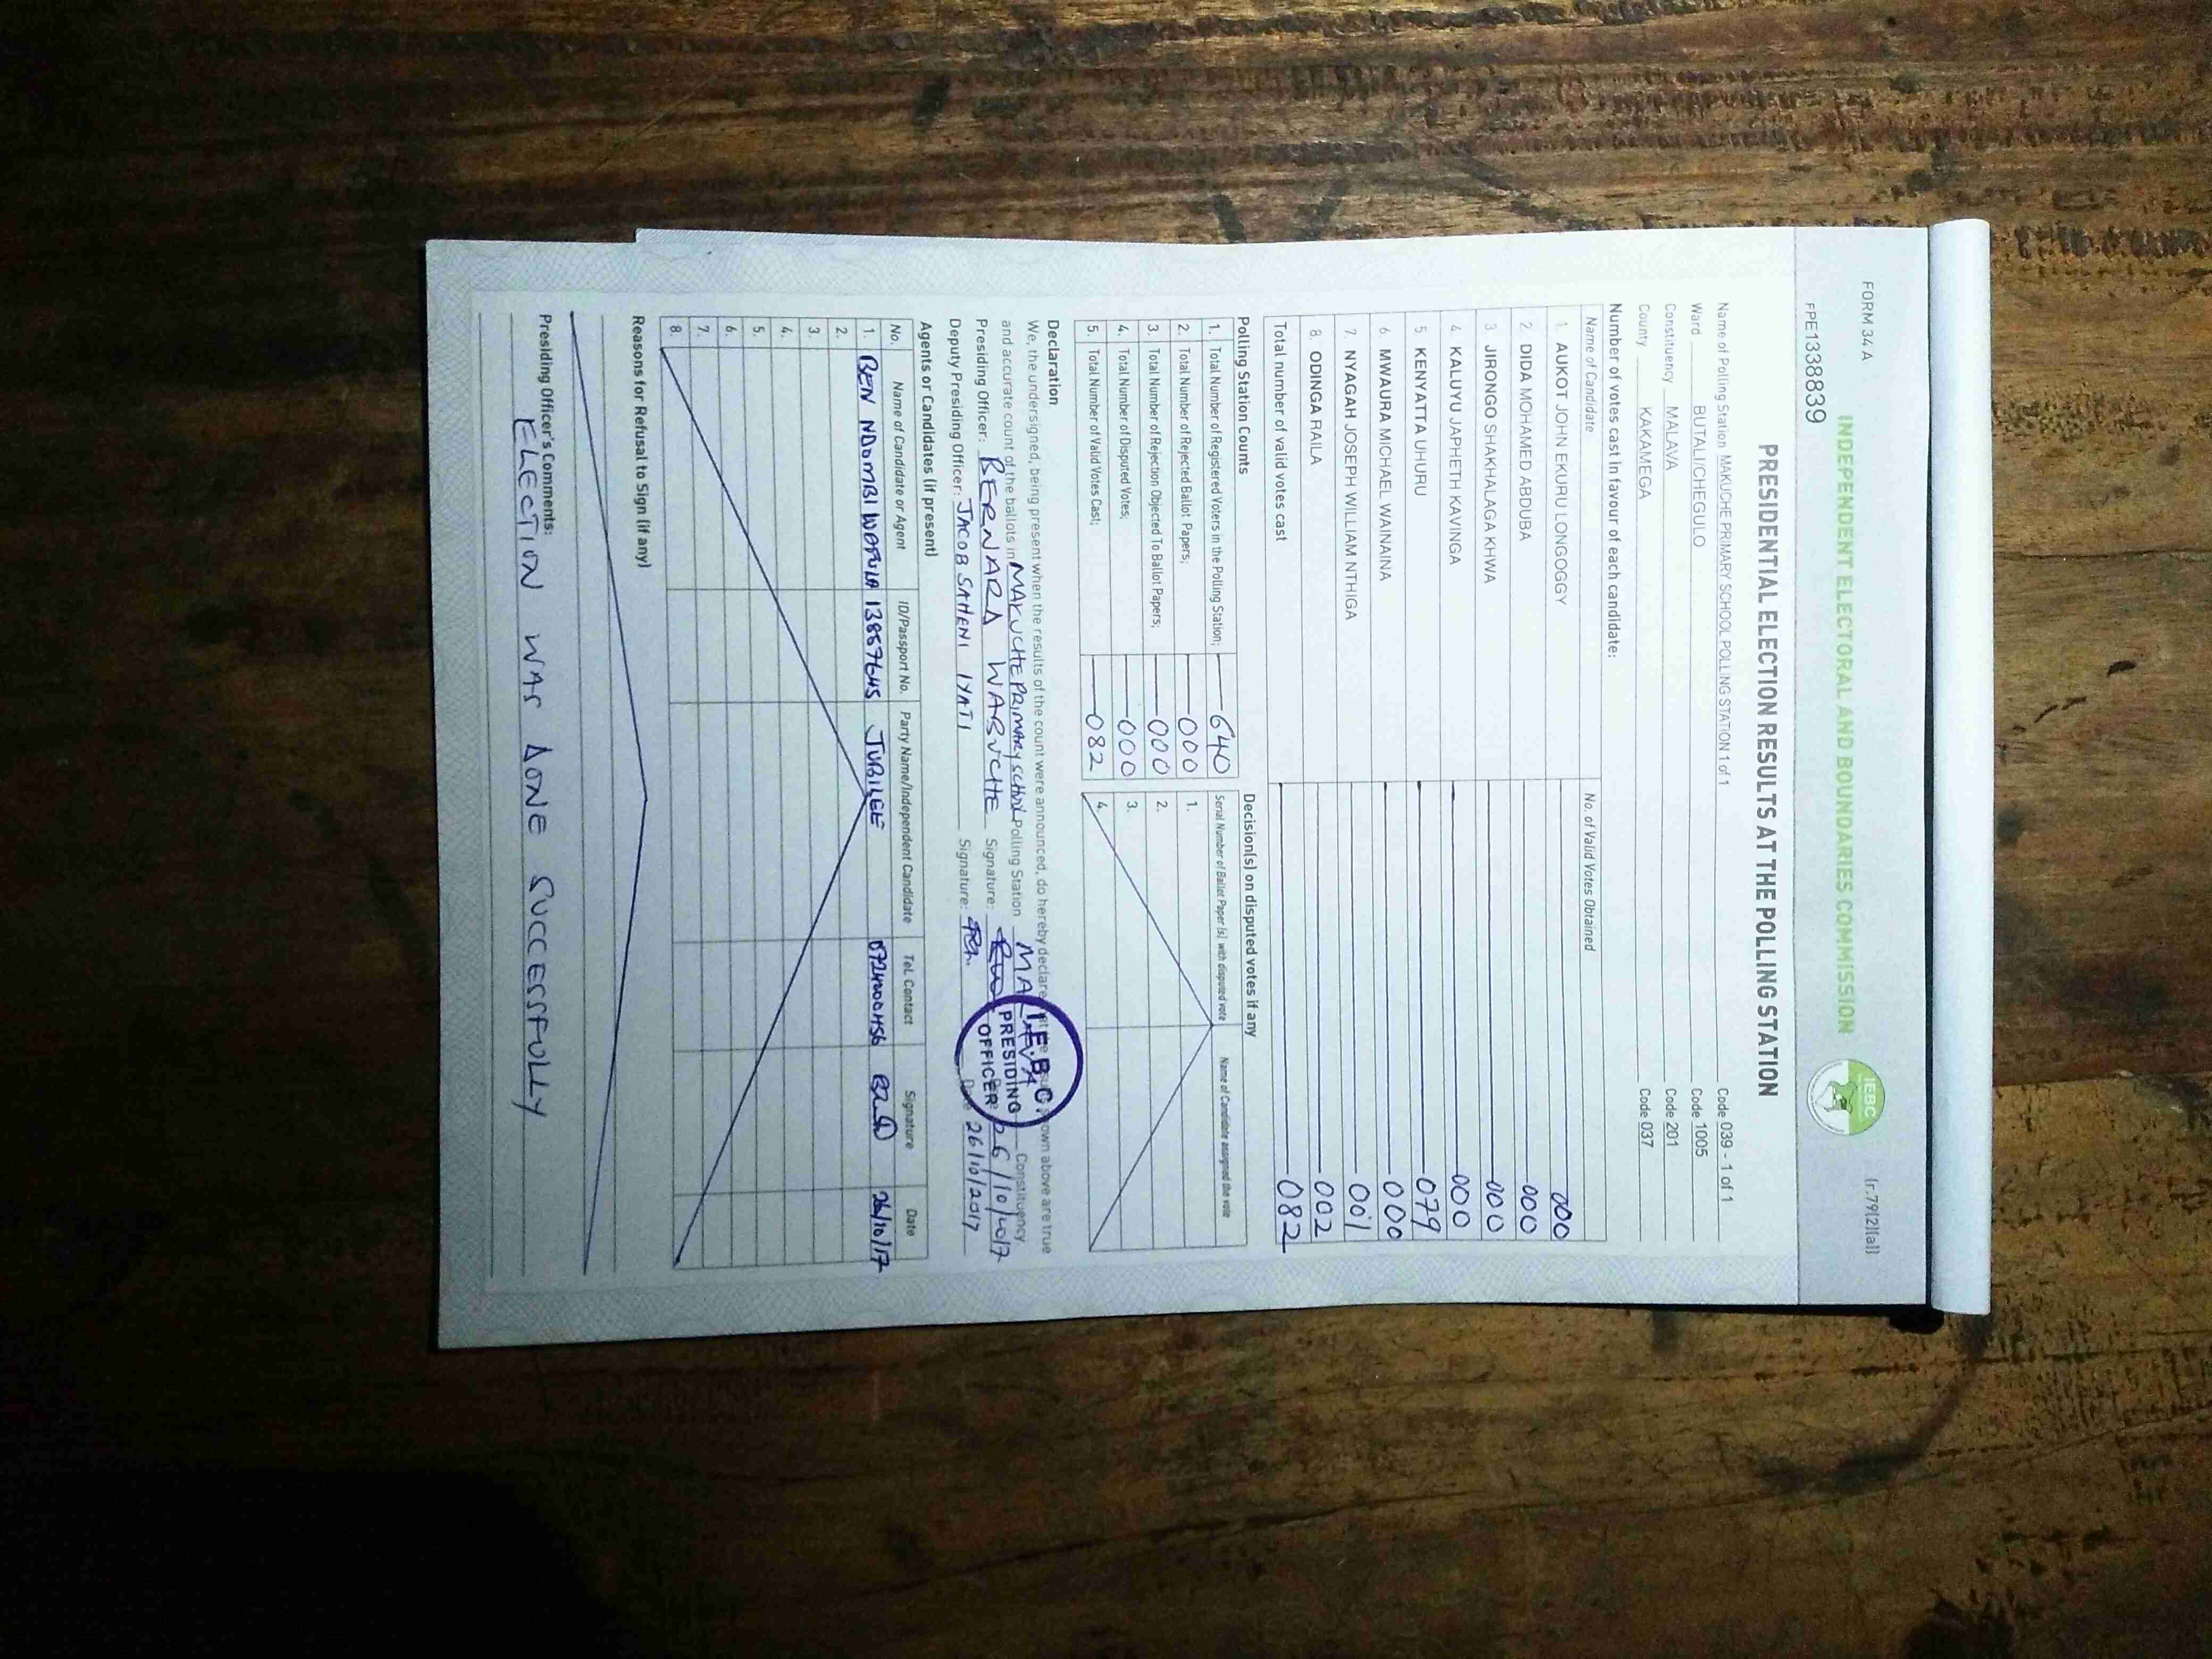 FORM 34 A
(r.79(2)(a))
INDEPENDENT ELECTORAL AND BOUNDARIES COMMISSION
IEBC
FPE1338839
PRESIDENTIAL ELECTION RESULTS AT THE POLLING STATION
Name of Polling Station MAKUCHE PRIMARY SCHOOL POLLING STATION 1 of 1 Code 039 - 1 of 1
Ward BUTALI/CHEGULO Code 1005
Constituency MALAVA Code 201
County KAKAMEGA Code 037
Number of votes cast in favour of each candidate:
Name of Candidate No. of Valid Votes Obtained
1. AUKOT JOHN EKURU LONGOGGY 000
2 DIDA MOHAMED ABDUBA 000
3 JIRONGO SHAKHALAGA KHWA 000
4 KALUYU JAPHETH KAVINGA 000
5 KENYATTA UHURU 079
6 MWAURA MICHAEL WAINAINA 000
7. NYAGAH JOSEPH WILLIAM NTHIGA 001
8. ODINGA RAILA 002
Total number of valid votes cast 082
Polling Station Counts Decision(s) on disputed votes if any
1. Total Number of Registered Voters in the Polling Station; 640 Serial Number of Ballot Paper (s) with disputed vote Name of Candidate assigned the vote
2. Total Number of Rejected Ballot Papers; 000 1.
3. Total Number of Rejection Objected To Ballot Papers; 000 2.
4. Total Number of Disputed Votes; 000 3.
5. Total Number of Valid Votes Cast; 082 4.
Declaration
We, the undersigned, being present when the results of the count were announced, do hereby declare above are true
and accurate count of the ballots in MAKUCHE PRIMARY SCHOOL Polling Station Constituency.
Presiding Officer: BERNARD WABUCHE Signature: 26/10/2017
Deputy Presiding Officer: JACOB SAHENI IYATI Signature: Date 26/10/2017
I.E.B.C.
PRESIDING
OFFICER
Agents or Candidates (if present)
No. Name of Candidate or Agent ID/Passport No. Party Name/Independent Candidate Tel. Contact Signature Date
1. BEN NDOMBI WAFULA 13857645 JUBILEE 0724000456 26/10/17
2.
3.
4.
5.
6.
7.
8.
Reasons for Refusal to Sign (if any)
Presiding Officer's Comments:
ELECTION WAS DONE SUCCESSFULLY